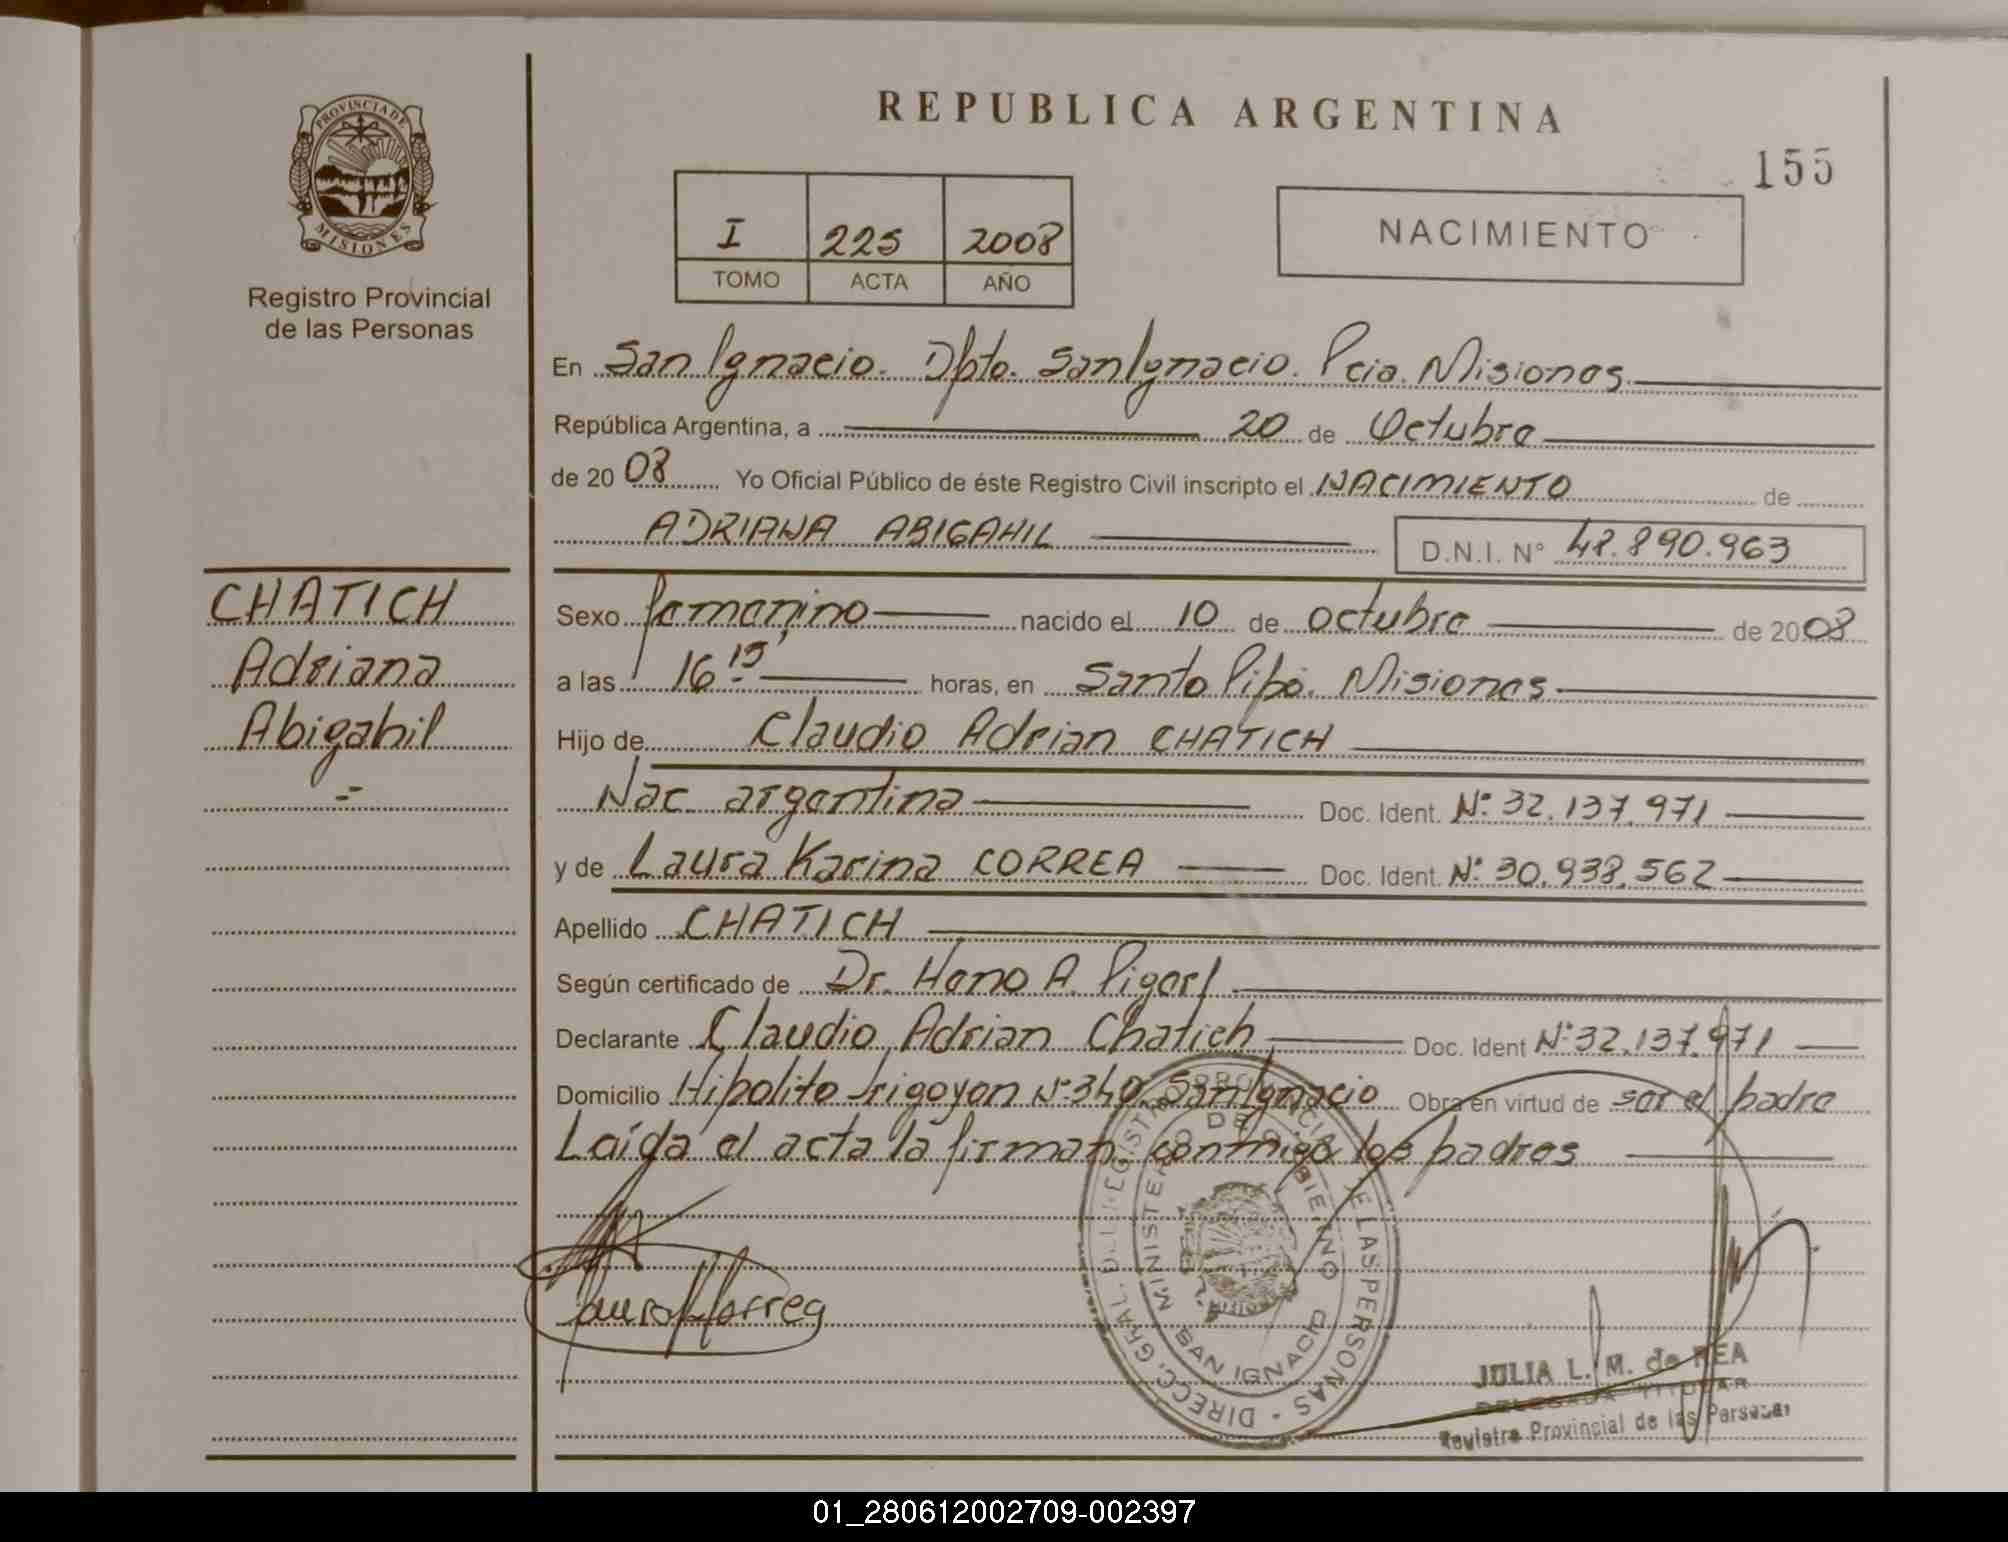 REPUBLICA ARGENTINA
155
PROVINCIA DE
MISIONES
Registro Provincial
de las Personas
I 225 2008
TOMO ACTA AÑO
NACIMIENTO
En San Ignacio. Dpto. San Ignacio. Pcia. Misiones
República Argentina, a 20 de Octubre
de 2008 Yo Oficial Público de éste Registro Civil inscripto el NACIMIENTO de
ADRIANA ABIGAHIL D.N.I. N° 48.890.963
CHATICH
Adriana
Abigahil
Sexo femenino nacido el 10 de octubre de 2008
a las 16 15 horas, en Santo Pipó. Misiones
Hijo de Claudio Adrian CHATICH
Nac. argentina Doc. Ident. N° 32.137.971
y de Laura Karina CORREA Doc. Ident. N° 30.938.562
Apellido CHATICH
Según certificado de Dr. A.
Declarante Claudio Adrian Chatich Doc. Ident N° 32.137.971
Domicilio Hipolito Irigoyen N° 340. San Ignacio Obra en virtud de ser el padre
Leída el acta la firman conmigo los padres
DIRECC. GRAL. DEL REGISTRO PROVINCIAL DE LAS PERSONAS
MINISTERIO DE GOBIERNO
SAN IGNACIO
JULIA L. M. de REA
DELEGADA TITULAR
Registro Provincial de las Personas
01_280612002709-002397